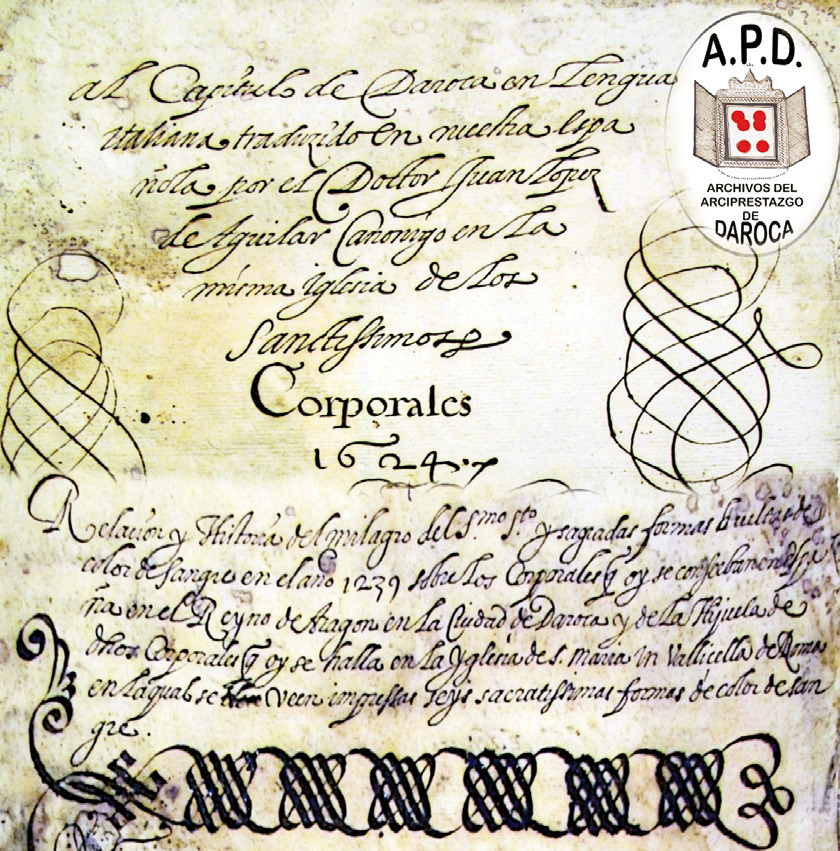 al Capitulo de Daroca en Lengua
italiana traduzido en nuestra espa
ñola por el Doctor Juan Lopez
de Aguilar Canonigo en la
misma iglesia de los
Sanctissimos
Corporales
1624
Relacion y Historia del milagro del S.mo S.to y sagradas formas bueltas de
color de sangre en el año 1239 sobre los Corporales q̃ oy se conserban en Espa
ña en el Reyno de Aragon en la Ciudad de Daroca y de la Hijuela de
dhos Corporales q̃ oy se halla en la Yglesia de S. Maria in Vallicella de Roma
en la qual se veen impressas seys sacratissimas formas de color de san
gre.
A.P.D.
ARCHIVOS DEL
ARCIPRESTAZGO
DE
DAROCA